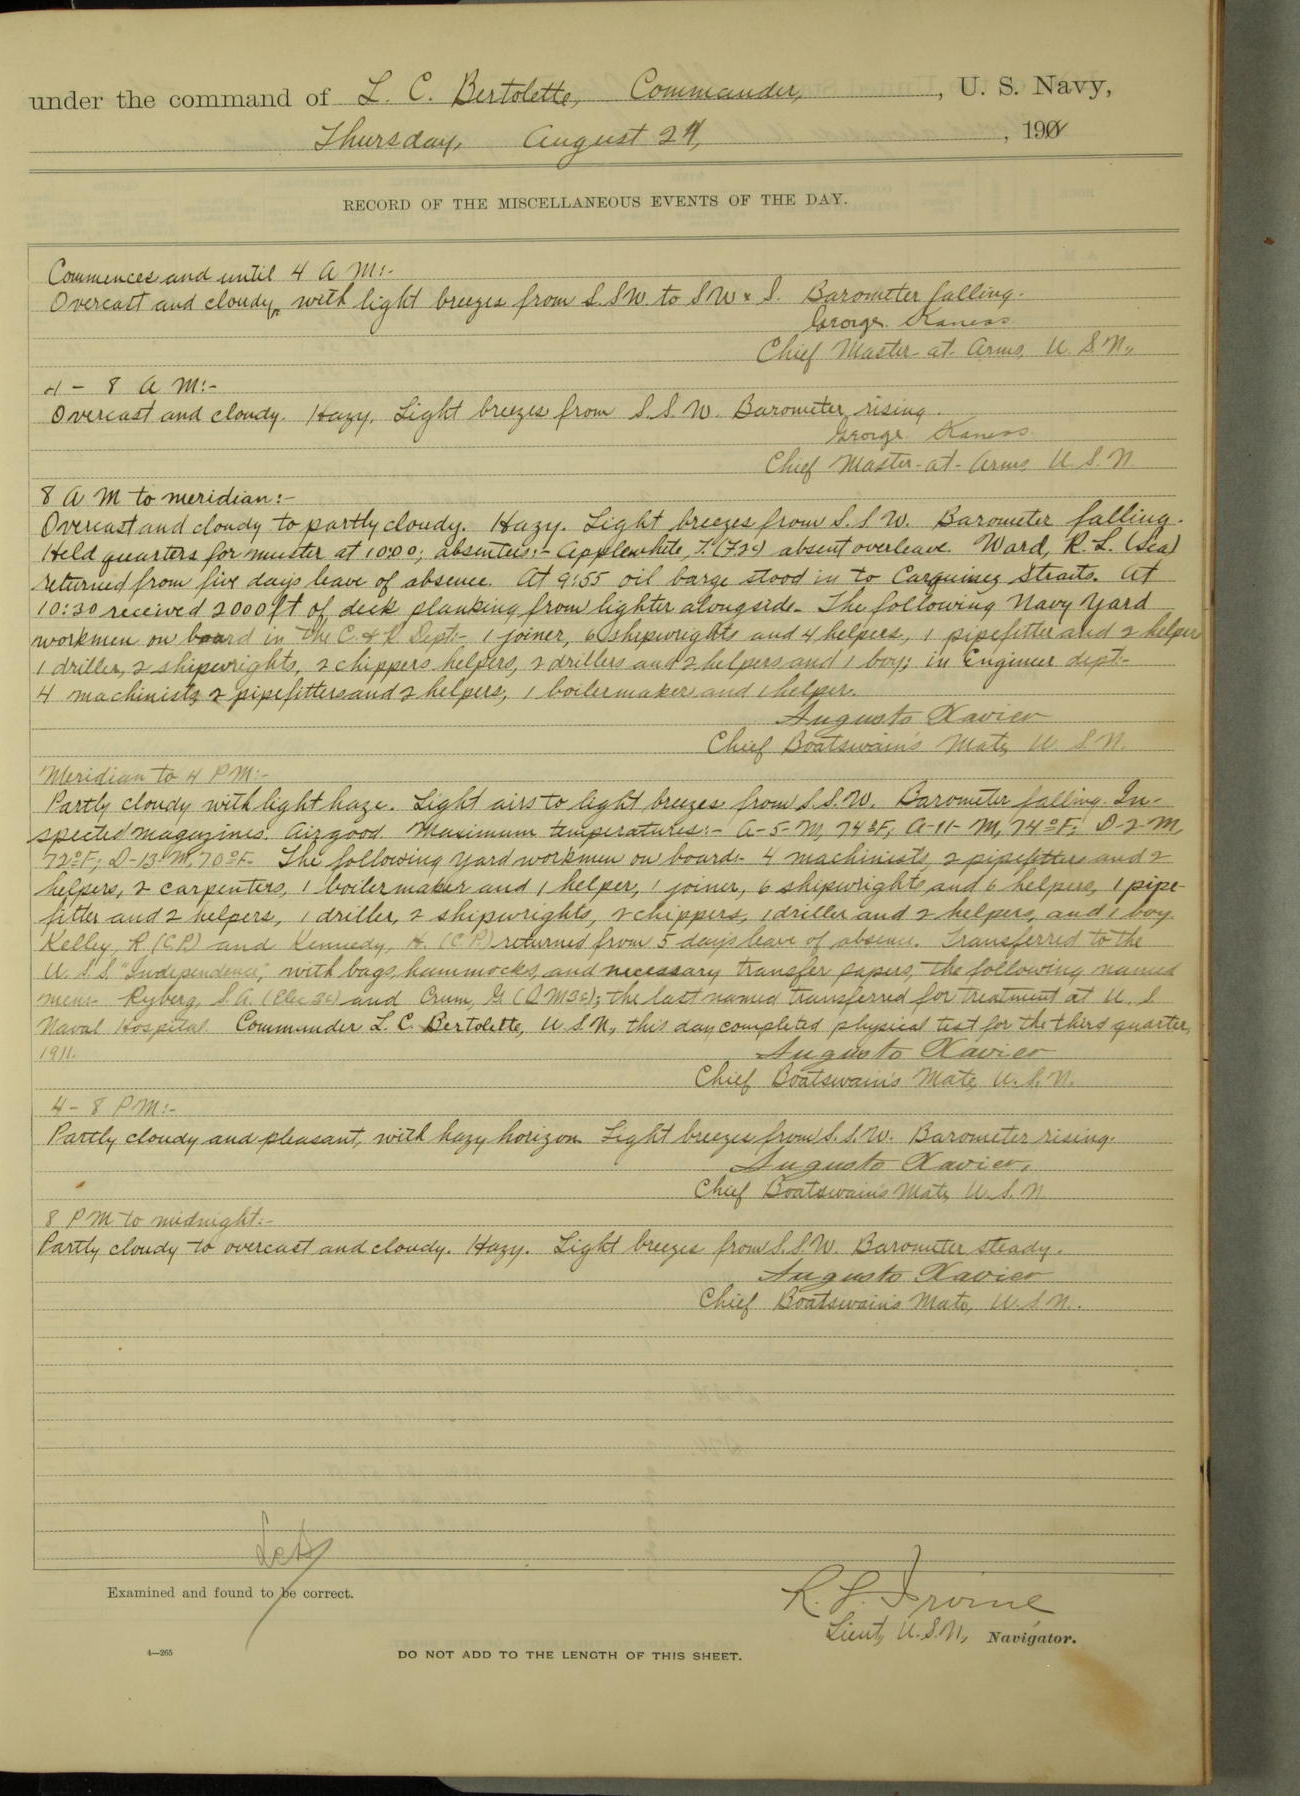 under the command of L. C. Bertolette, Commander, , U. S. Navy,
Thursday, August 24, , 190
RECORD OF THE MISCELLANEOUS EVENTS OF THE DAY.
Commences and until 4 A M:-
Overcast and cloudy, with light breezes from S.S.W. to SW x S. Barometer falling.
George
Chief Master-at-Arms, U. S. N.,
4 - 8 A M:-
Overcast and cloudy. Hazy. Light breezes from S.S.W. Barometer rising.
George
Chief Master-at-Arms, U. S. N
8 A M to meridian:-
Overcast and cloudy to partly cloudy. Hazy. Light breezes from S.S.W. Barometer falling.
Held quarters for muster at 10:00; absentees:- Applewhite, J. (F.2c) absent overleave. Ward, R. L. (Sea)
returned from five days leave of absence. At 9:55 oil barge stood in to Carquinez Straits. At
10:30 received 2000 ft of deck planking from lighter alongside. The following Navy Yard
workmen on board in the C. & R. Dept:- 1 joiner, 6 shipwrights and 4 helpers, 1 pipefitter and 2 helper
1 driller, 2 shipwrights, 2 chippers helpers, 2 drillers and 2 helpers and 1 boy; in Engineer dept:-
4 machinists, 2 pipefitters and 2 helpers, 1 boilermaker and 1 helper.
Augusto Xavier
Chief Boatswain's Mate, U. S. N.
Meridian to 4 P M:-
Partly cloudy with light haze. Light airs to light breezes from S.S.W. Barometer falling. In-
spected magazines. Air good. Maximum temperatures:- A-5-M, 74°F; A-11-M, 74°F; D-2-M,
72°F; D-13-M, 70°F. The following yard workmen on board:- 4 machinists, 2 pipefitters and 2
helpers, 2 carpenters, 1 boilermaker and 1 helper, 1 joiner, 6 shipwrights and 6 helpers, 1 pipe-
fitter and 2 helpers, 1 driller, 2 shipwrights, 2 chippers, 1 driller and 2 helpers, and 1 boy.
Kelley, R (C.P.) and Kennedy, H. (C.P.) returned from 5 days leave of absence. Transferred to the
U. S. S. "Independence", with bags, hammocks, and necessary transfer papers, the following named
men:- Ryberg, S. A. (Elec 3c) and Crum, G. (Q M 3c); the last named transferred for treatment at U. S
Naval Hospital. Commander L. C. Bertolette, U. S. N., this day completed physical test for the third quarter,
1911.
Augusto Xavier
Chief Boatswain's Mate, U. S. N.
4 - 8 P M:-
Partly cloudy and pleasant, with hazy horizon. Light breezes from S.S.W. Barometer rising.
Augusto Xavier,
Chief Boatswain's Mate, U. S. N
8 P M to midnight:-
Partly cloudy to overcast and cloudy. Hazy. Light breezes from S.S.W. Barometer steady.
Augusto Xavier
Chief Boatswain's Mate, U. S. N.
Examined and found to be correct.
R. L. Irvine
Lieut, U. S. N., Navigator.
4—265
DO NOT ADD TO THE LENGTH OF THIS SHEET.